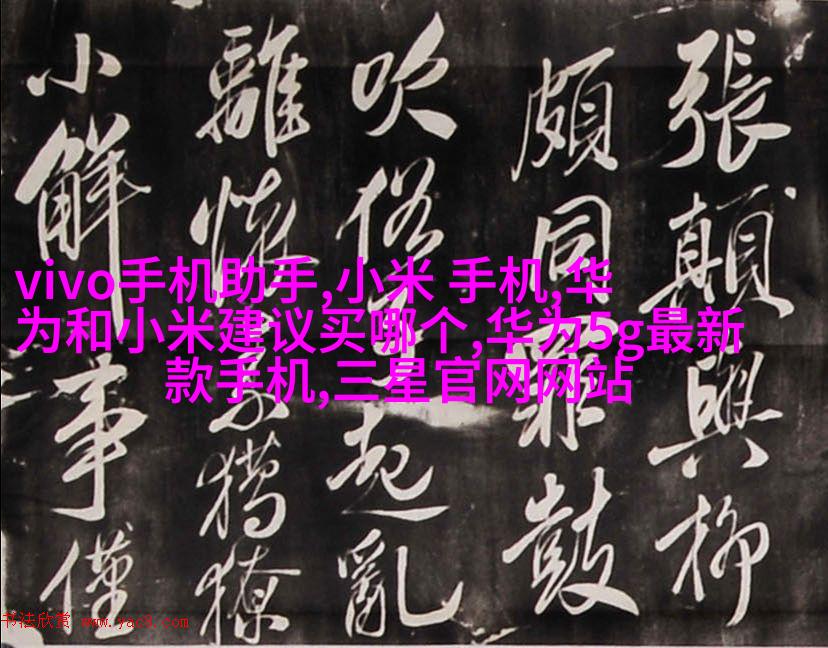 張顛與柳
頗同罪鼓
吹俗子起亂
離懷素獦獠
小解事僅
vivo手机助手,小米 手机,华
为和小米建议买哪个,华为5g最新
款手机,三星官网网站
书法欣赏 www.yac8.com